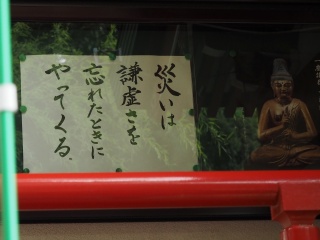 災いは
謙虚さを
忘れたときに
やってくる.